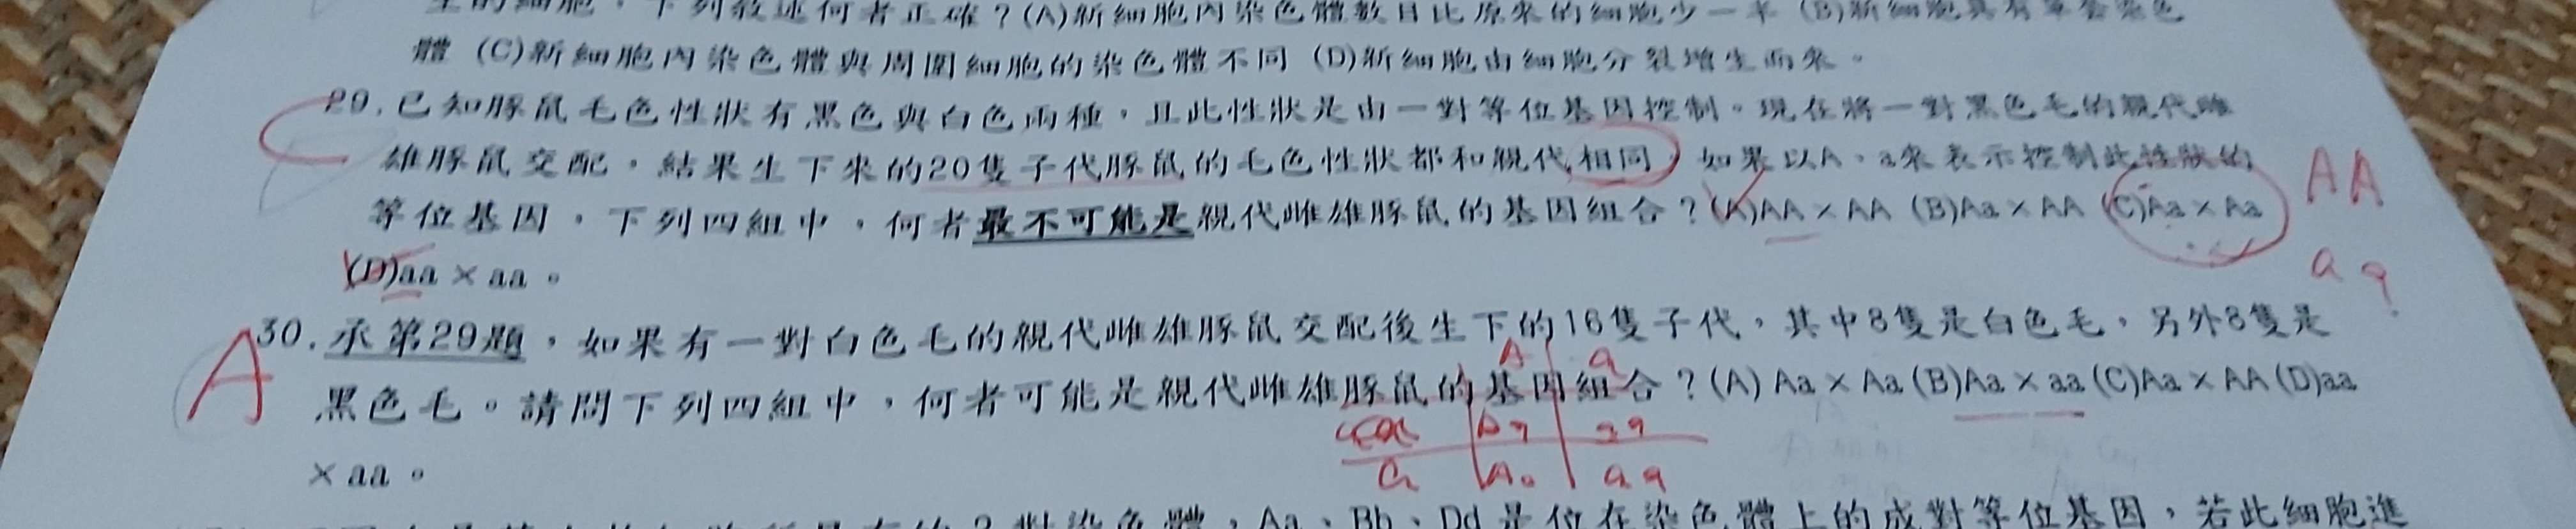 生的細胞,下列敘述何者正確?(A)新細胞內染色體數目比原來的細胞少一半 (B)新細胞具有單套染色
體 (C)新細胞內染色體與周圍細胞的染色體不同 (D)新細胞由細胞分裂增生而來。
29.已知豚鼠毛色性狀有黑色與白色兩種,且此性狀是由一對等位基因控制。現在將一對黑色毛的親代雌
C
雄豚鼠交配,結果生下來的20隻子代豚鼠的毛色性狀都和親代相同,如果以A、a來表示控制此性狀的
AA
等位基因,下列四組中,何者最不可能是親代雌雄豚鼠的基因組合?(A)AA × AA (B)Aa × AA (C)Aa × Aa
(D)aa × aa。
a a
30.承第29題,如果有一對白色毛的親代雌雄豚鼠交配後生下的16隻子代,其中8隻是白色毛,另外8隻是
A
A a
黑色毛。請問下列四組中,何者可能是親代雌雄豚鼠的基因組合?(A) Aa × Aa (B)Aa × aa (C)Aa × AA (D)aa
Aa aa
× aa。
a Aa aa
2對染色體,Aa、Bb、Dd是位在染色體上的成對等位基因,若此細胞進